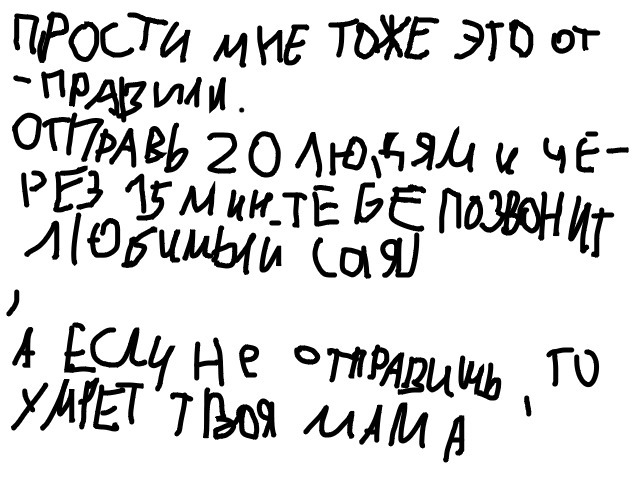 ПРОСТИ МНЕ ТОЖЕ ЭТО ОТ
-ПРАВИЛИ.
ОТПРАВЬ 20 ЛЮДЯМ И ЧЕ-
РЕЗ 15 МИН-ТЕБЕ ПОЗВОНИТ
ЛЮБИМЫЙ
,
А ЕСЛИ НЕ ОТПРАВИШЬ, ТО
УМРЕТ ТВОЯ МАМА